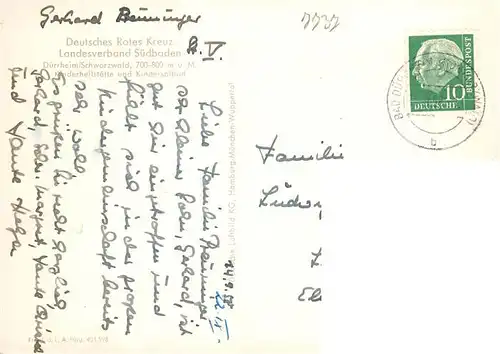 Gerhard Bräuninger
7737
Bt. V.
Deutsches Rotes Kreuz
Landesverband Südbaden
Dürrheim/Schwarzwald, 700-800 m ü. M.
Kinderheilstätte und Kindersolbad
24.9.
Liebe Familie Bräuninger
Ihr kleiner Sohn, Gerhard, ist
gut hier eingetroffen und
fühlt sich in der grossen
Kindergemeinschaft bereits
sehr wohl.
Es grüssen Sie recht herzlich
Gerhard, Schw. Margret, Tante
und Tante Helga
Luftbild KG., Hamburg-München-Wuppertal
Familie
Ludwig
DEUTSCHE
BUNDESPOST
10
BAD DÜRRHEIM
b